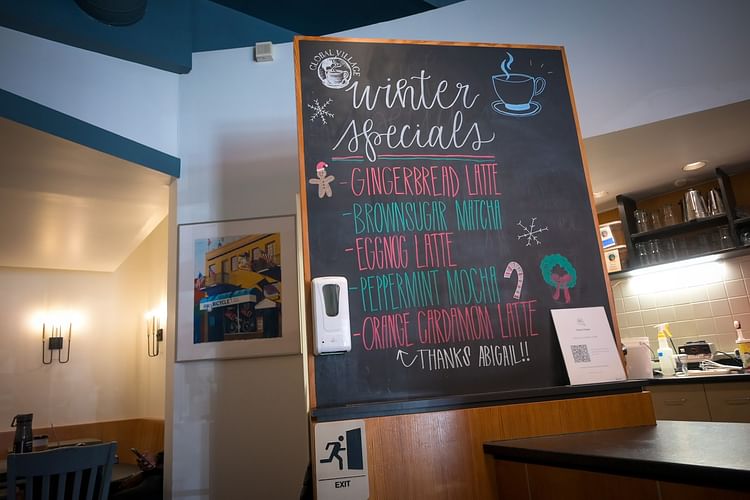 GLOBAL VILLAGE
winter
specials
-GINGERBREAD LATTE
-BROWNSUGAR MATCHA
-EGGNOG LATTE
-PEPPERMINT MOCHA
-ORANGE CARDAMOM LATTE
THANKS ABIGAIL!!
BICYCLE
EXIT